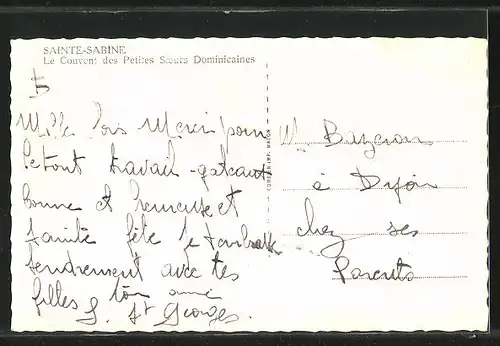 SAINTE-SABINE
Le Couvent des Petites Sœurs Dominicaines
Mille fois Merci pour
le tout travail - gateaux
bonne et heureuse et
sainte fête je t'embrasse
tendrement avec tes
filles ton amie
S. St Georges.
COMBIER IMP. MACON
M
à Dijon
chez ses
Parents